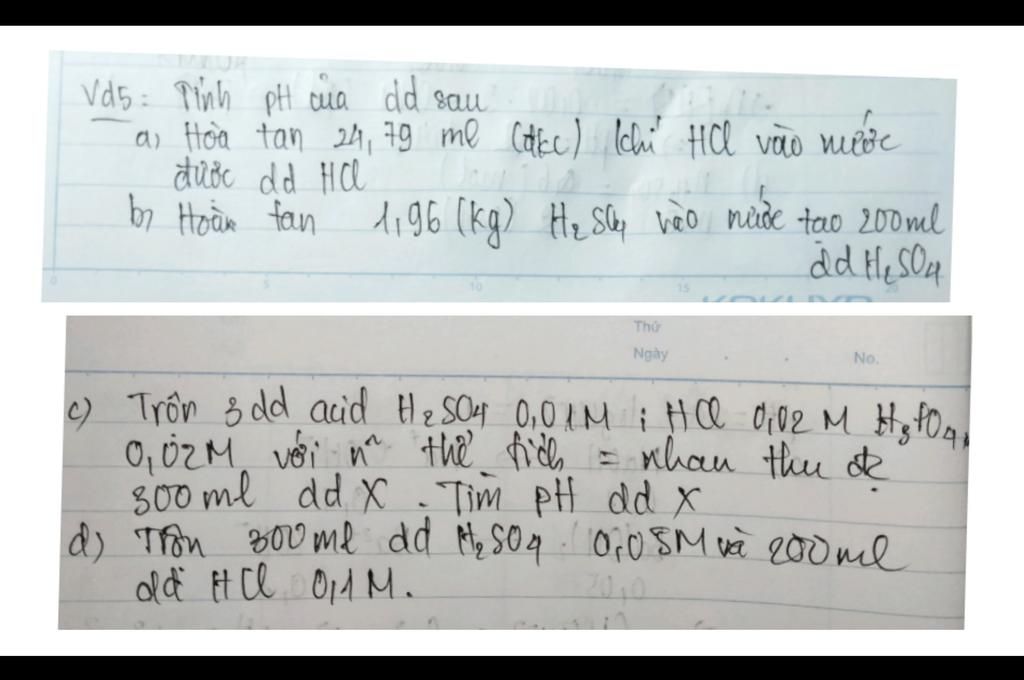 Vd5: Tính pH của dd sau
a) Hòa tan 24,79 ml (đkc) khí HCl vào nước
được dd HCl
b) Hoàn tan 1,96 (kg) H₂SO₄ vào nước tạo 200ml
dd H₂SO₄
0 5 10 15 20
Thứ
Ngày . . No.
c) Trộn 3 dd acid H₂SO₄ 0,01M ; HCl 0,02 M H₃PO₄,
0,02M với n~ thể tích = nhau thu đc
300 ml dd X . Tìm pH dd X
d) Trộn 300ml dd H₂SO₄ 0,05M và 200ml
dd HCl 0,1 M.